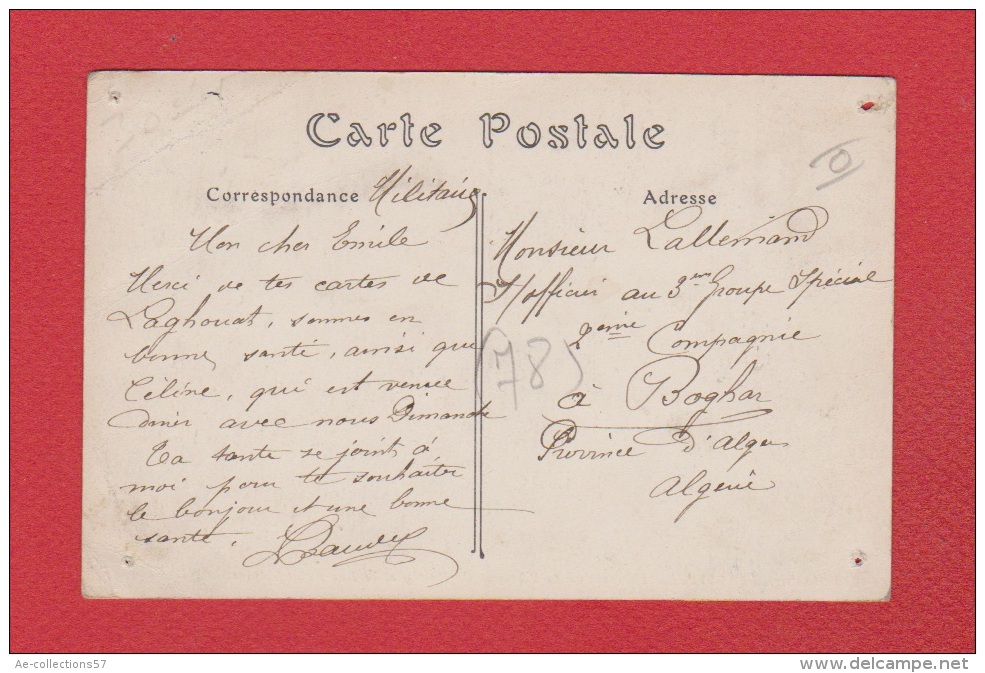 Carte Postale
Correspondance Militaire
Mon cher Emile
Merci de tes cartes de
Laghouat, sommes en
bonne santé, ainsi que
Céline, qui est venue
diner avec nous Dimanche
Ta tante se joint à
moi pour te souhaiter
le bonjour et une bonne
santé.
Adresse
Monsieur Lallemand
S/officier au 3eme Groupe Spécial
2eme Compagnie
à Boghar
Province d'Alger
Algérie
(78)
Ae-collections57
www.delcampe.net